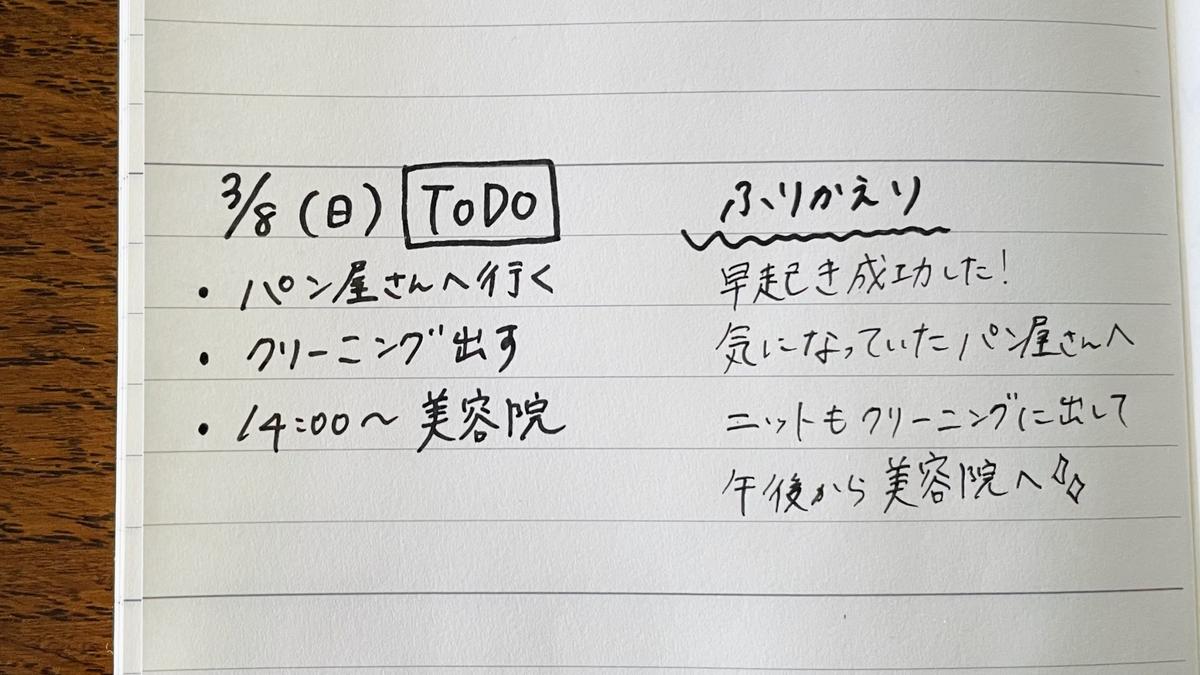 3/8(日) ToDo
・パン屋さんへ行く
・クリーニング出す
・14:00〜 美容院
ふりかえり
早起き成功した!
気になっていたパン屋さんへ
ニットもクリーニングに出して
午後から美容院へ